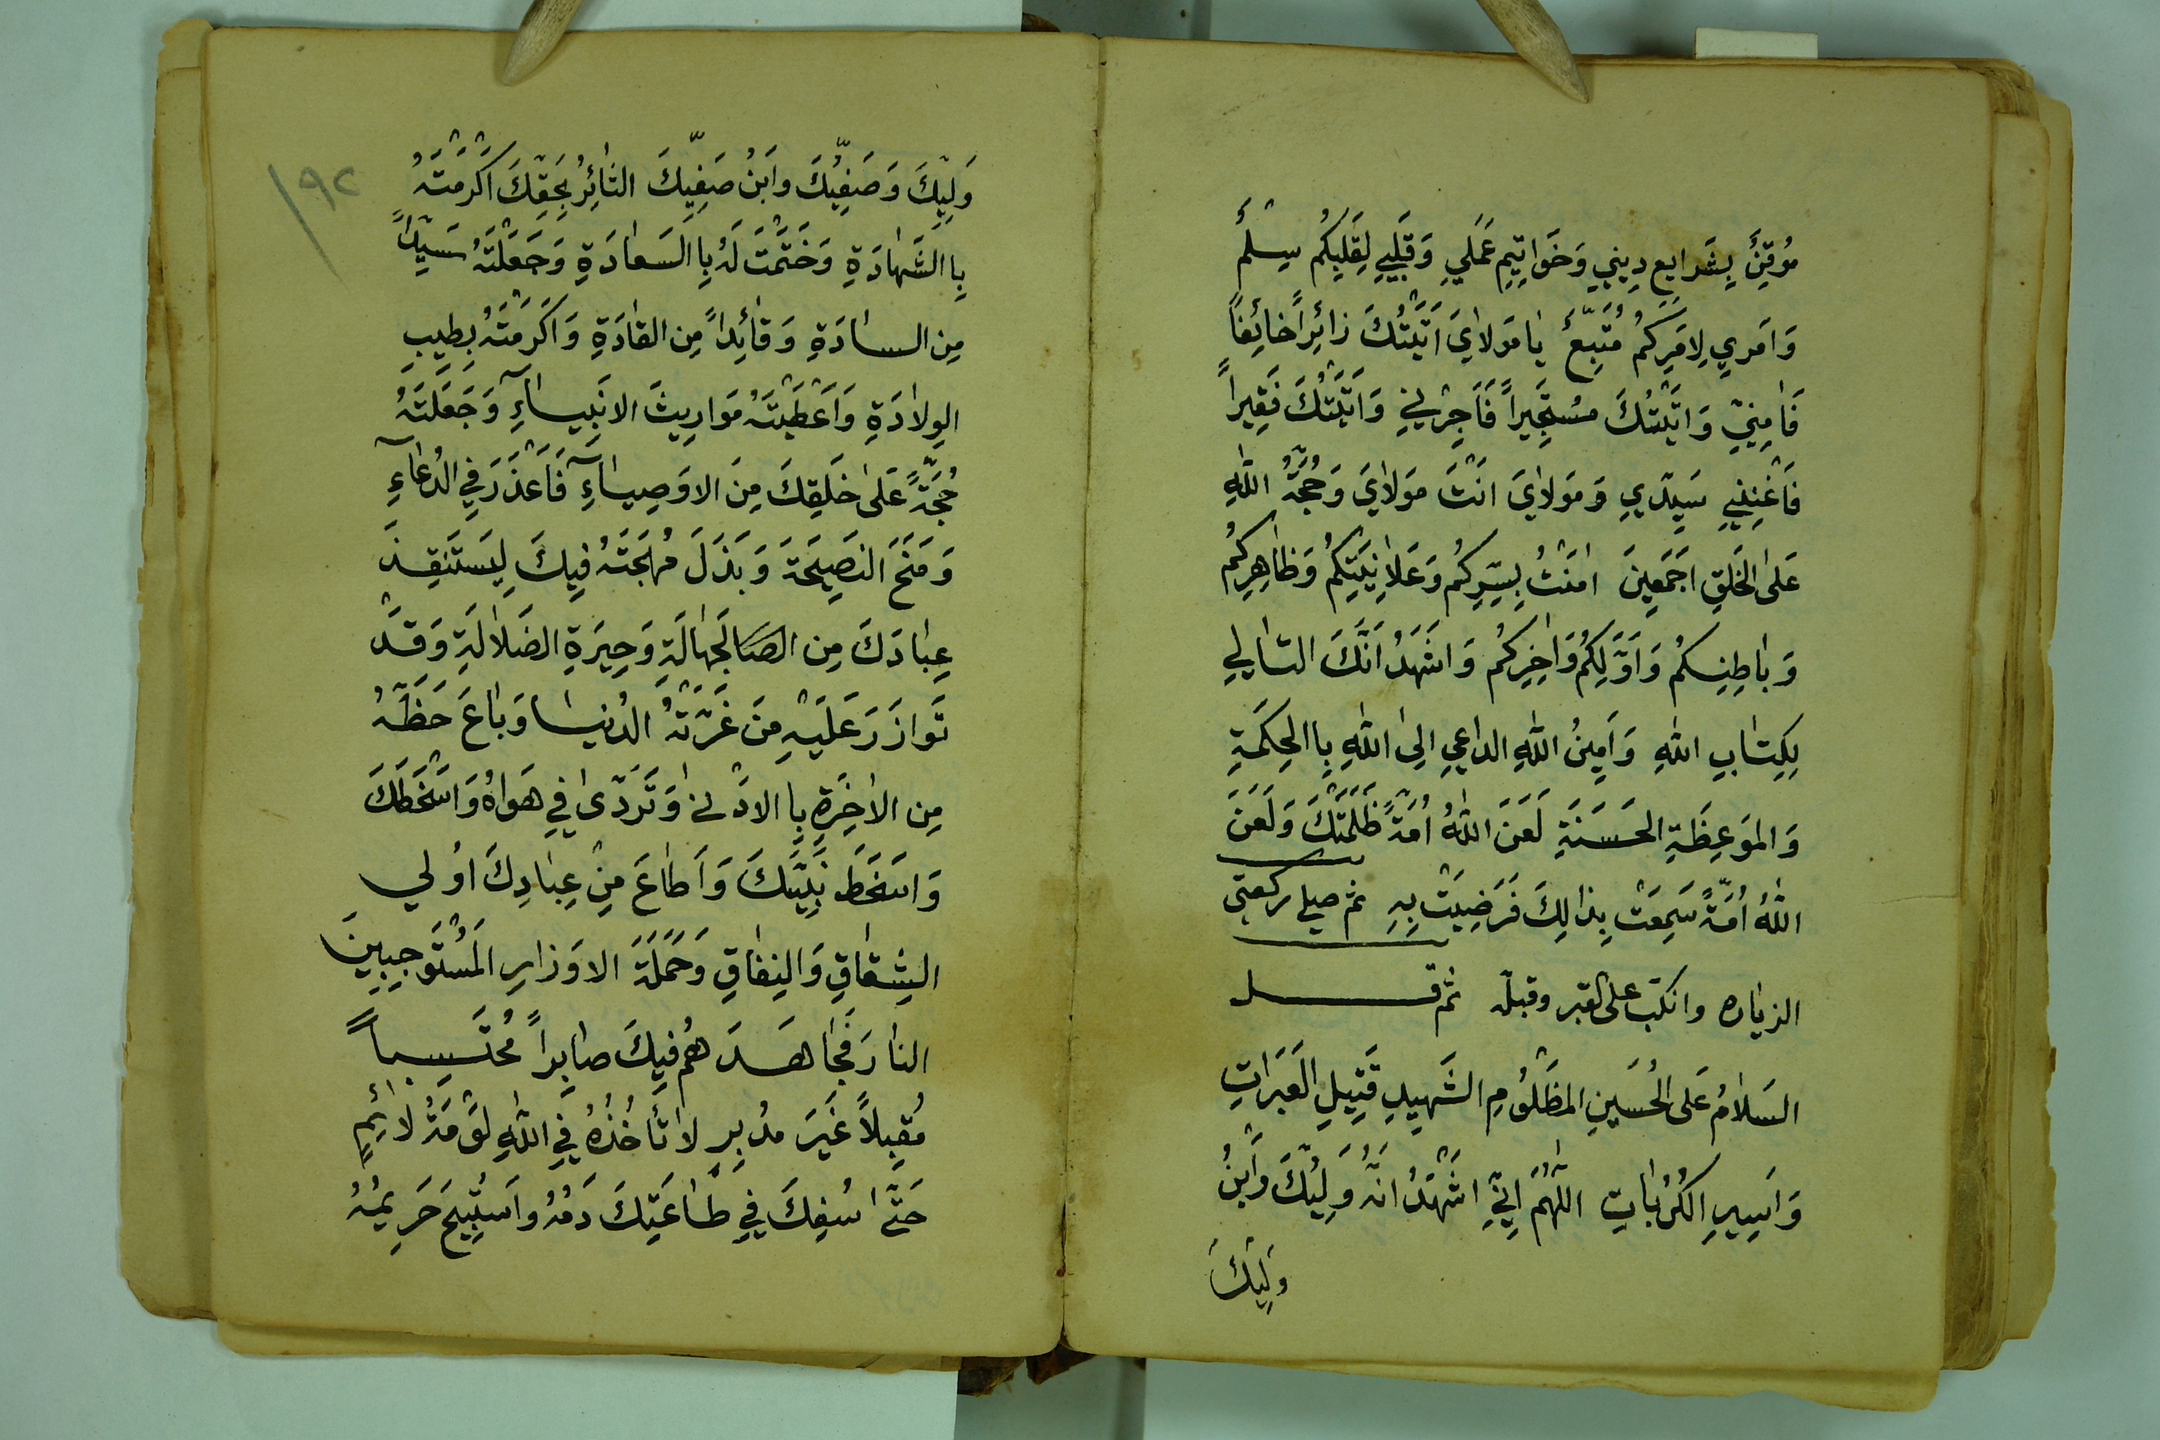 مُوقِنٌ بِشَرايعِ دِيني وَخَواتِيمِ عَمَلي وَقَلبي لِقَلبِكُم سِلْمٌ
وَاَمري لِاَمرِكُم مُتَّبِعٌ يا مَولايَ اَتَيْتُكَ زائِراً خائِفاً
فَاٰمِنّي وَاتَيْتُكَ مُسْتَجِيراً فَاَجِرْني وَاتَيْتُكَ فَقِيراً
فَاَغْنِني سَيِّدي وَمَولايَ انْتَ مَولايَ وَحُجَّةُ اللهِ
عَلىٰ الخَلقِ اجمَعِينَ امَنْتُ بِسِرِّكُم وَعَلانِيَتِكُم وَظاهِرِكُم
وَباطِنِكُم وَاَوَّلِكُم وَاخِرِكُم وَاشْهَدُ اَنَّكَ التّالي
لِكِتابِ اللهِ وَاَمِينُ اللهِ الداعي الِى اللهِ بِاالحِكمَةِ
وَالمَوعِظَةِ الحَسَنَةِ لَعَنَ اللهُ اُمَّةً ظَلَمَتْكَ وَلَعَنَ
اللهُ اُمَّةً سَمِعَتْ بِذالِكَ فَرَضِيَتْ بِهِ ثم صلي ركعتي
الزياره وانكب على القبر وقبله ثم قل
السَلامُ عَلى الحُسَينِ المظَلُومِ الشَهِيدِ قَتِيلِ العَبَراتِ
وَاَسِيرِ الكُرُباتِ اللّهُمَّ اِنّي اشْهَدُ انَّهُ وَلِيُّكَ وَابنُ
وَلِيِّكَ
١٩٢
وَلِيِّكَ وَصَفِيُّكَ وابَنُ صَفِيِّكَ الثائِرُ بِحَقِّكَ اَكْرَمْتَهُ
بِاالشَهادَةِ وَخَتَمْتَ لَهُ بِاالسَعادَةِ وَجَعَلْتَهُ سَيِّداً
مِن السادَةِ وَقائِداً مِن القادَةِ وَاَكرَمْتَهُ بِطِيبِ
الوِلادَةِ وَاَعْطَيْتَهُ مَوارِيثَ الانبِياءِ وَجَعَلتَهُ
حُجَّةً عَلىٰ خَلقِكَ مِنَ الاوصِياءِ فَاَعْذَرَ فِي الدُعاءِ
وَمَنَحَ النَصِيحَةَ وَبَذَلَ مُهجَتَهُ فِيكَ لِيَستَنقِذَ
عِبادَكَ مِن الجَهالَةِ وَحِيرَةِ الضَلالَةِ وَقَدْ
تَوازَرَ عَلَيْهِ مَنْ غَرَّتْهُ الدُنيا وَباعَ حَظَّهُ
مِن الاخِرَةِ بِاالادْنى وَتَرَدّىٰ في هَواهُ وَاسْخَطَكَ
وَاسَخَطَ نَبِيَّكَ وَاَطاعَ مِنْ عِبادِكَ اوُلي
الشِقاقِ وَالنِفاقِ وَحَمَلَةَ الاوزارِ المُسْتَوجِبِينَ
النارَ فَجاهَدَ هُم فِيكَ صابِراً مُحتَسِباً
مُقبِلاً غَيَر مدُبِرٍ لا تأخُذُهُ فِي اللهِ لَوْمَةُ لائِمٍ
حَتّىٰ اسُفِكَ في طاعَتِكَ دَمُهُ واَستُبِيحَ حَرِيمُهُ